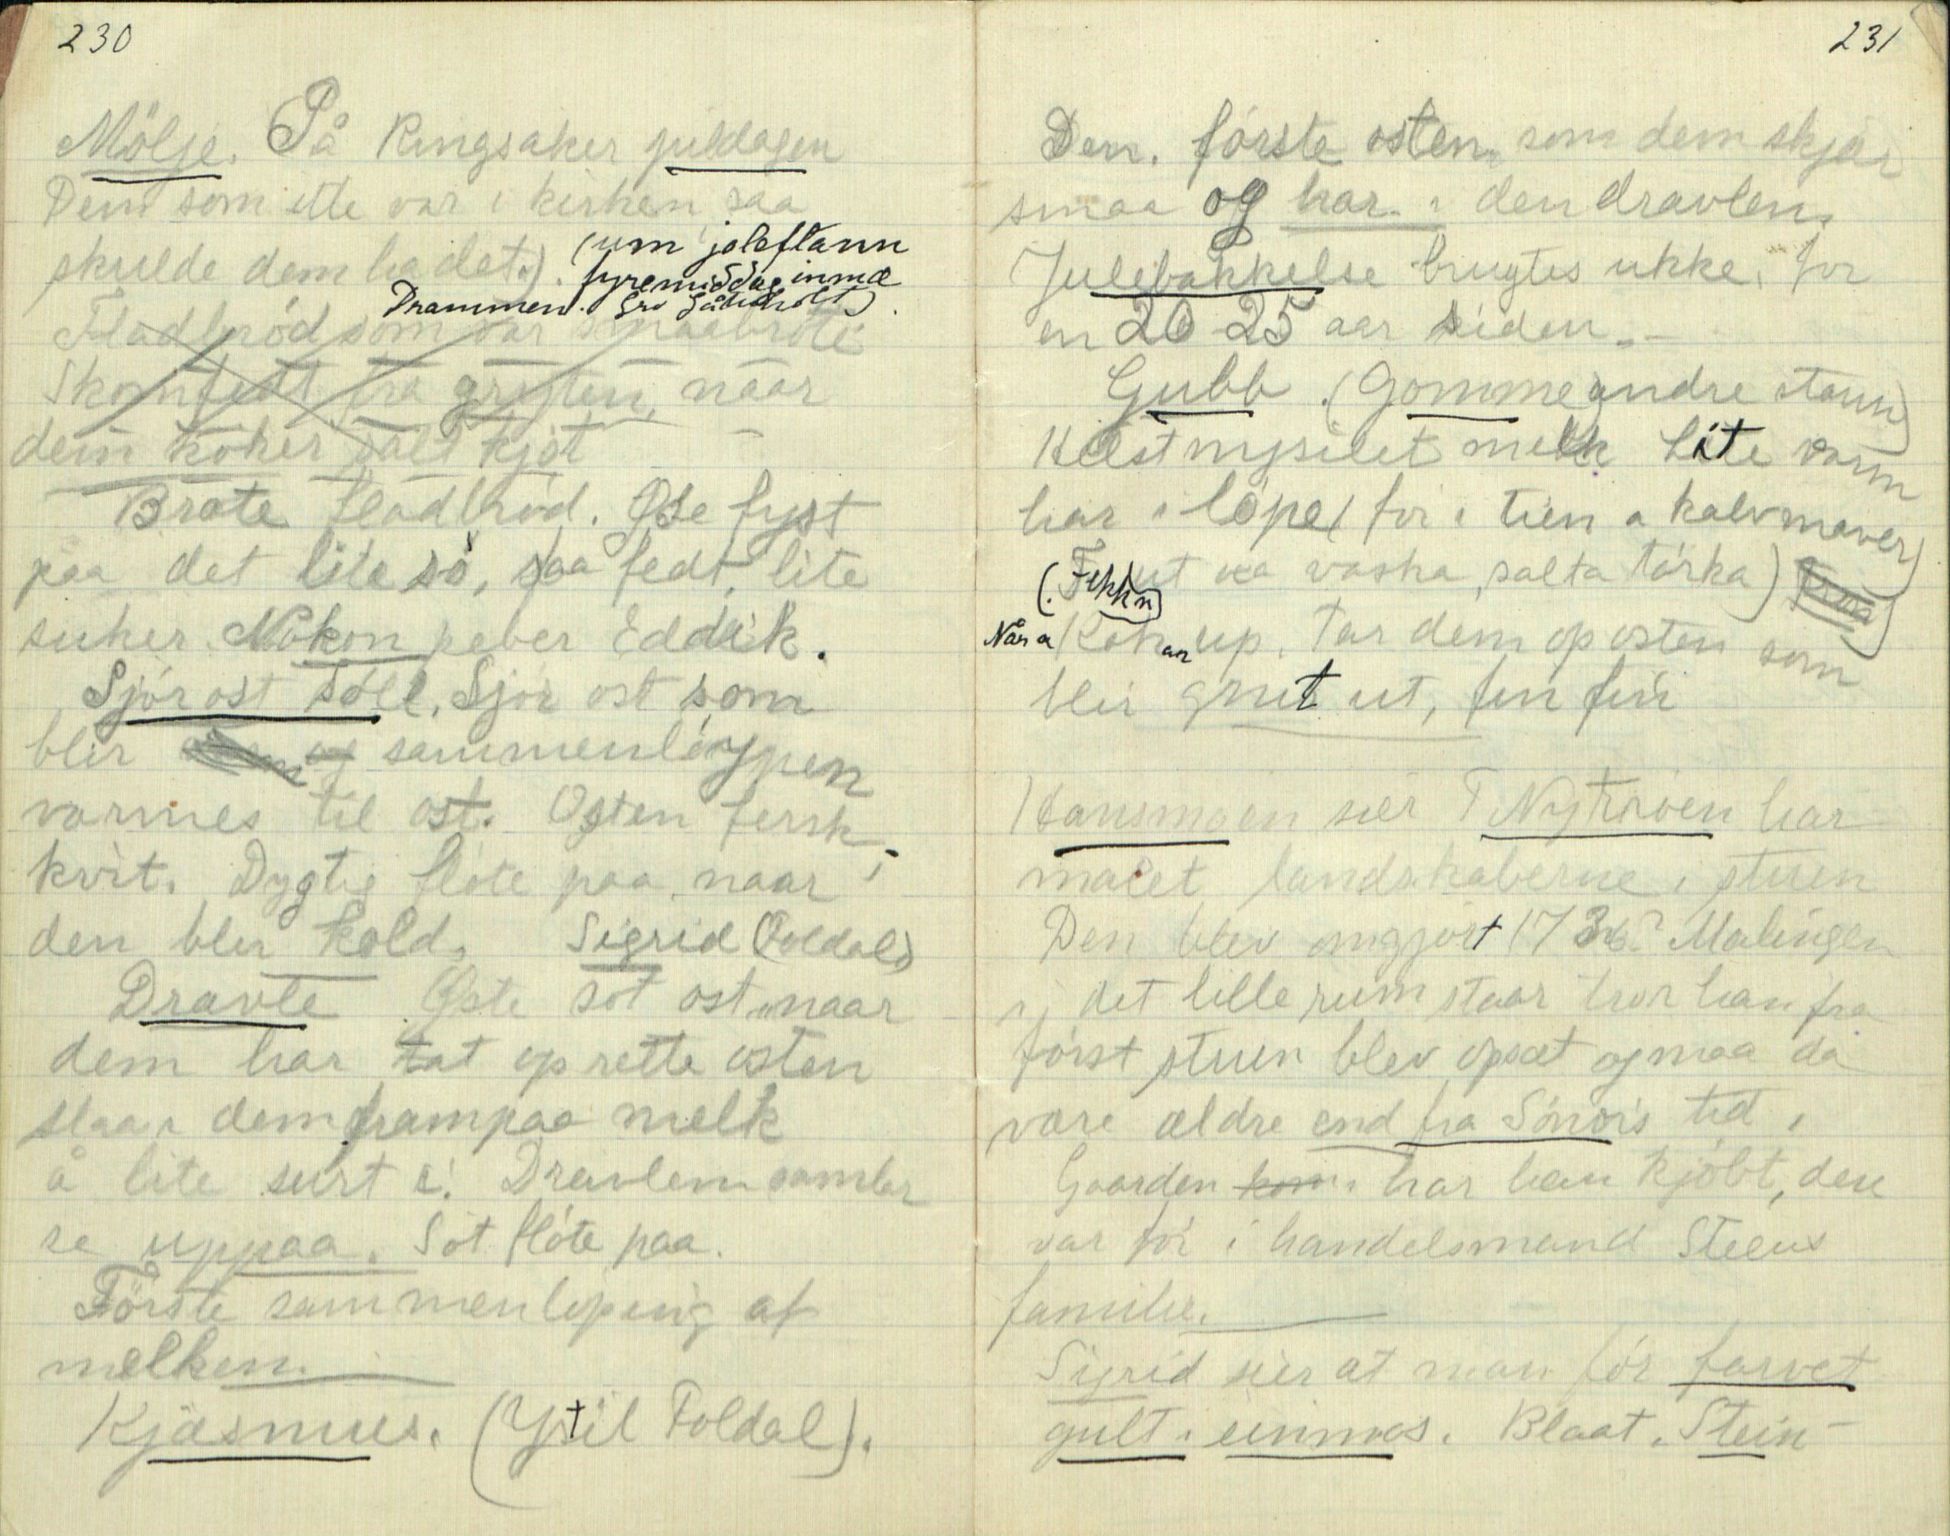 230
Mölje. På Ringsaker juldagen
Dem som itte var i kirken saa
skulde dem ha det.). (um joleftann
fyremiddag inmæ
Drammen.
Fladbröd som var smaabröte
Skomfedt fra gryten, naar
dem koker salt kjöt
Bröte fladbröd. Öse fyst
paa det lite sö, saa fedt, lite
suker. Nokon peber Eddik.
Sjörost söll. Sjör ost som
blir sammenlöypen
varmes til ost. Osten fersk,
kvit. Dygtig flöte paa naar
den blir kold. Sigrid (Foldal)
Dravle Öste söt ost naar
dem har tat op rette osten
slaar dem frampaa melk
å lite surt i! Dravlem samler
se uppaa. Söt flöte paa.
Förste sammenlöping af
melken.
Kjæsmus. (Ystil Foldal).
231
Den. förste osten som dem skjær
smaa og har i den dravlen.
Julebakkelse brugtes ikke for
en 20 25 aar siden.-
Gubb. (Gomme andre staun)
Helst nysilet melk Lite varm
har i löpe (för i tien a kalvmaver)
(Fekk ut va vaska, salta törka)
Når a Kok an up. Tar dem op osten som
blir grut ut, fin fin
Hansmoen sier T Nytröen har
malet landskaberne i stuen
Den blev omgjort 1736? Malingen
i det lille rum staar tror han fra
först stuen blev opsat og maa da
være ældre end fra Sönois tid.
Gaarden kom har han kjöbt, den
var för i handelsmand Steens
familie.
Sigrid sier at man för farvet
gult i einmos. Blaat. Stein-